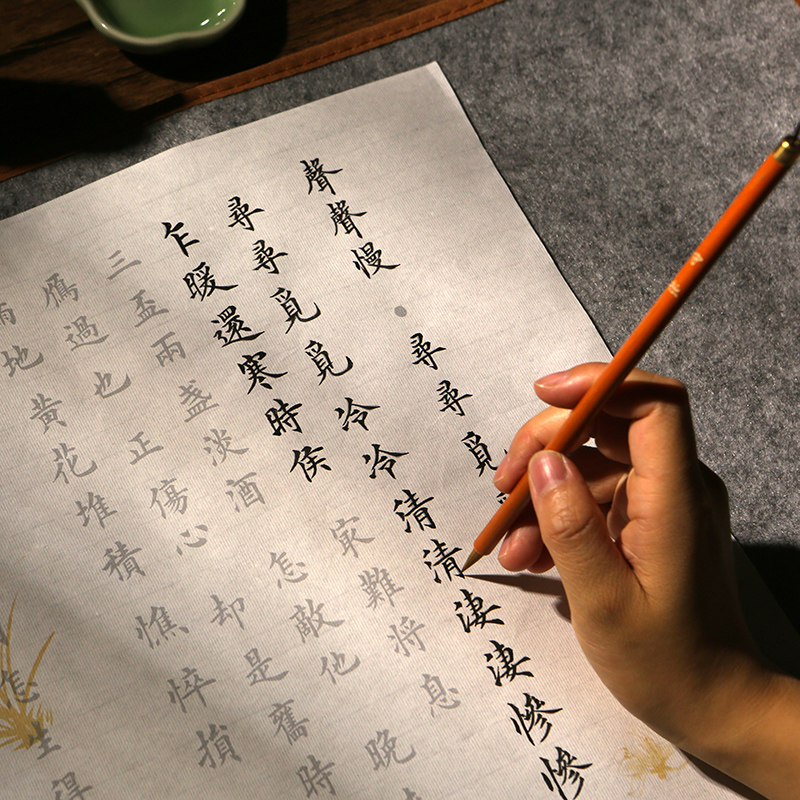 聲聲慢・尋尋覓
尋尋覓覓冷冷清清淒淒慘慘
乍暖還寒時候 冣難將息
三盃兩盞淡酒 怎敵他 晚
鴈過也 正傷心 却是舊時
地黃花堆積 憔悴損
怎生得